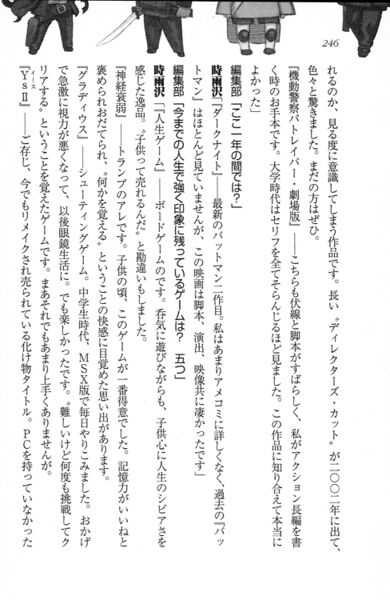 246
れるのか、見る度に意識してしまう作品です。長い〝ディレクターズ・カット〟が二〇〇二年に出て、
色々と驚きました。まだの方はぜひ。
『機動警察パトレイバー 劇場版』――こちらも伏線と脚本がすばらしく、私がアクション長編を書
く時のお手本です。大学時代はセリフを全てそらんじるほど見ました。この作品に知り合えて本当に
よかった」
編集部「ここ一年の間では?」
時雨沢「『ダークナイト』――最新のバットマン二作目。私はあまりアメコミに詳しくなく、過去の『バッ
トマン』はほとんど見ていませんが、この映画は脚本、演出、映像共に凄かったです」
編集部「今までの人生で強く印象に残っているゲームは? 五つ」
時雨沢「『人生ゲーム』――ボードゲームのです。呑気に遊びながらも、子供心に人生のシビアさを
感じた逸品。〝子供って売れるんだ〟と勘違いもしました。
『神経衰弱』――トランプのアレです。子供の頃、このゲームが一番得意でした。記憶力がいいねと
褒められおだてられ、〝何かを覚える〟ということの快感に目覚めた思い出があります。
『グラディウス』――シューティングゲーム。中学生時代、MSX版で毎日やりこみました。おかげ
で急激に視力が悪くなって、以後眼鏡生活に。でも楽しかったです。〝難しいけど何度も挑戦してク
リアする〟ということを覚えたゲームです。まあそれでもあまり上手くありませんが。
『YsⅡ』――ご存じ、今でもリメイクされ売られている化け物タイトル。PCを持っていなかった
イース